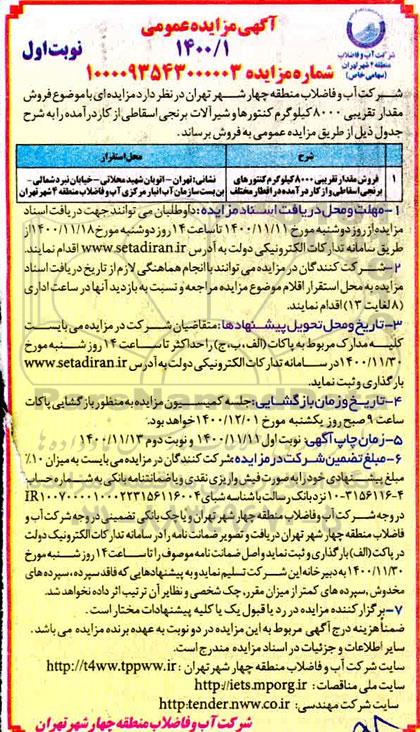 آگهی مزایده عمومی
۱۴۰۰/۱
نوبت اول
شرکت آب و فاضلاب
منطقه ۴ شهر تهران
(سهامی خاص)
شماره مزایده ۱۰۰۰۰۹۳۵۴۳۰۰۰۰۰۳
شرکت آب و فاضلاب منطقه چهار شهر تهران در نظر دارد مزایده ای با موضوع فروش
مقدار تقریبی ۸۰۰۰ کیلوگرم کنتورها و شیرآلات برنجی اسقاطی از کار درآمده را به شرح
جدول ذیل از طریق مزایده عمومی به فروش برساند.
شرح
محل استقرار
۱
فروش مقدار تقریبی ۸۰۰۰ کیلوگرم کنتورهای
برنجی اسقاطی و از کار درآمده در اقطار مختلف
نشانی: تهران – اتوبان شهید محلاتی – خیابان نبرد شمالی –
بن بست سازمان آب انبار مرکزی آب و فاضلاب منطقه ۴ شهر تهران
۱–مهلت و محل دریافت اسناد مزایده: داوطلبان می توانند جهت دریافت اسناد
مزایده از روز دوشنبه مورخ ۱۴۰۰/۱۱/۱۱ تا ساعت ۱۴ روز دوشنبه مورخ ۱۴۰۰/۱۱/۱۸ از
طریق سامانه تدارکات الکترونیکی دولت به آدرس www.setadiran.ir اقدام نمایند.
۲–شرکت کنندگان در مزایده می توانند با انجام هماهنگی لازم از تاریخ دریافت اسناد
مزایده به محل استقرار اقلام موضوع مزایده مراجعه و نسبت به بازدید آنها در ساعت اداری
(۸ لغایت ۱۳) اقدام نمایند.
۳–تاریخ و محل تحویل پیشنهادها: متقاضیان شرکت در مزایده می بایست
کلیه مدارک مربوط به پاکات (الف، ب، ج) را حداکثر تا ساعت ۱۴ روز شنبه مورخ
۱۴۰۰/۱۱/۳۰ در سامانه تدارکات الکترونیکی دولت به آدرس www.setadiran.ir
بارگذاری و ثبت نماید.
۴–تاریخ و زمان بازگشایی: جلسه کمیسیون مزایده به منظور بازگشایی پاکات
ساعت ۹ صبح روز یکشنبه مورخ ۱۴۰۰/۱۲/۰۱ خواهد بود.
۵–زمان چاپ آگهی: نوبت اول ۱۴۰۰/۱۱/۱۱ و نوبت دوم ۱۴۰۰/۱۱/۱۳
۶–مبلغ تضمین شرکت در مزایده: شرکت کنندگان در مزایده می بایست به میزان ۱۰٪
مبلغ پیشنهادی خود را به صورت فیش واریزی نقدی و یا ضمانتنامه بانکی به شماره حساب
۱۰۰-۳۱۵۶۱۱۶-۴ نزد بانک رسالت با شناسه شبای IR
در وجه شرکت آب و فاضلاب منطقه چهار شهر تهران و یا چک بانکی تضمینی در وجه شرکت آب و
فاضلاب منطقه چهار شهر تهران دریافت و تصویر ضمانت نامه را در سامانه تدارکات الکترونیک دولت
در پاکت (الف) بارگذاری و ثبت نماید و اصل ضمانت نامه موصوف را تا ساعت ۱۴ روز شنبه مورخ
۱۴۰۰/۱۱/۳۰ به دبیرخانه این شرکت تسلیم نماید و به پیشنهادهایی که فاقد سپرده، سپرده های
مخدوش، سپرده های کمتر از میزان مقرر، چک شخصی و نظایر آن ترتیب اثر داده نخواهد شد.
۷–برگزار کننده مزایده در رد یا قبول یک یا کلیه پیشنهادات مختار است.
ضمناً هزینه درج آگهی مربوط به این مزایده در دو نوبت به عهده برنده مزایده می باشد.
سایر اطلاعات و جزئیات در اسناد مزایده مندرج است.
سایت شرکت آب و فاضلاب منطقه چهار شهر تهران: http://t4ww.tppww.ir
سایت ملی مناقصات: http://iets.mporg.ir
سایت شرکت مهندسی: http:tender.nww.co.ir
شرکت آب و فاضلاب منطقه چهار شهر تهران